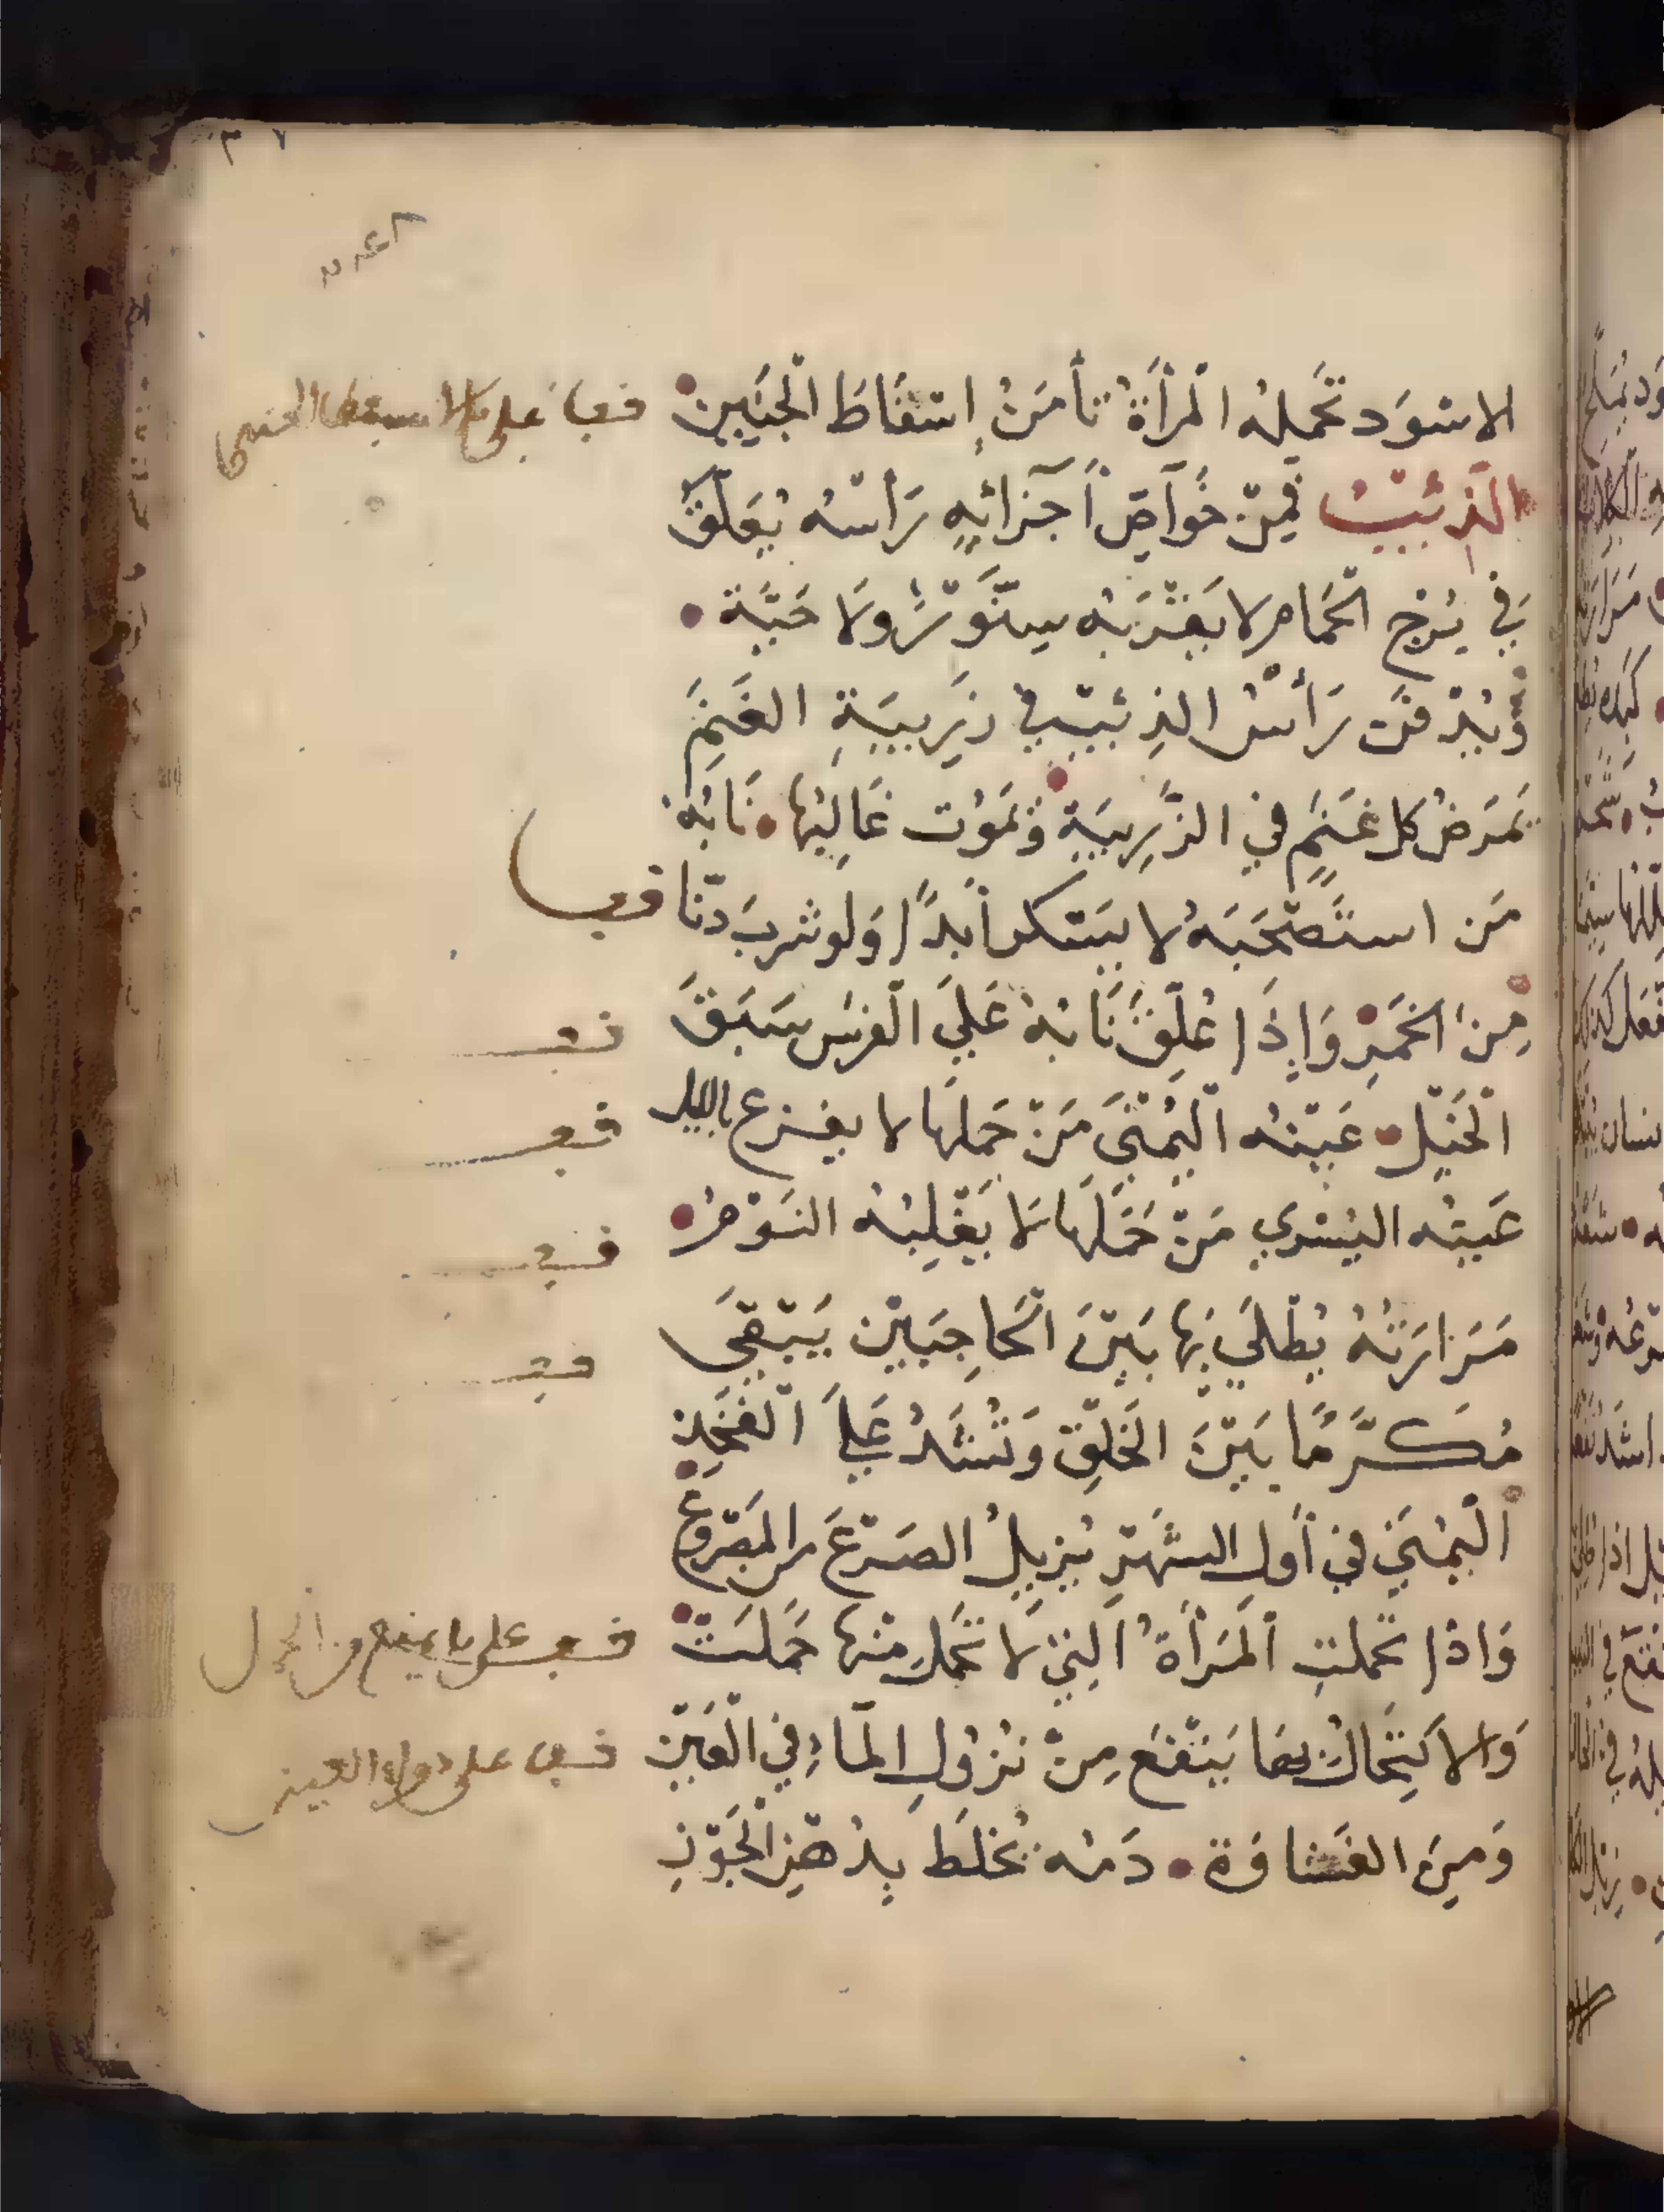 الاسوَد تحمله المرأة تأمَنُ اِسقاطَ الجَنين
الذئب فمِن خوَآصّ أجزائهِ رَأسُه يُعَلّقُ
في بُرْج الحَمام لا يَقْرَبُه سِنَّوْرٌ ولا حَيّة
وَيُدْفَن رَأسُ الذئب في زَرِيبَةِ الغَنَمِ
يَمرَضُ كل غَنَمٍ في الزَّرِيبَةِ وَيَموُت غَالِبُها نَابُه
مَن استَصْحَبَه لا يَسكر أبدًا وَلو شربَ دنّا
مِنَ الخَمْرِ وَإذَا عُلِّقَ نَابُهُ عَلَي الفَرسِ سَبَقَ
الخَيْل عَيْنُه اليُمْنَى مَنْ حَملَها لا يفزع بالليل
عَينُه اليُسْري مَنْ حَمَلَها لَا يَغْلِبُه النَوْمُ
مَرَارَتُهُ يُطْلَي بَها بَيْنَ الحَاجِبَيْن يَبْقَى
مُكَرَّمًا بَيْنَ الخَلقِ وَتُشَدُّ عَلَى الفَخِذِ
اليُمْنَي في أول الشَهْرِ يُزِيلُ الصَرْعَ من المَصْرُوعِ
وَاذا تحملتِ المَرأةُ الّتِي لَا تَحمل منْها حَملَتْ
وَالاكتِحَالُ بهَا يَنْفَع مِنْ نُزُولِ المآءِ في العَيْن
وَمِنَ الغَشاوَة دَمُه يُخلَط بِدُهْنِ الجَوْزِ
قف على ما يمنع من الحمل
قف على دواء العين